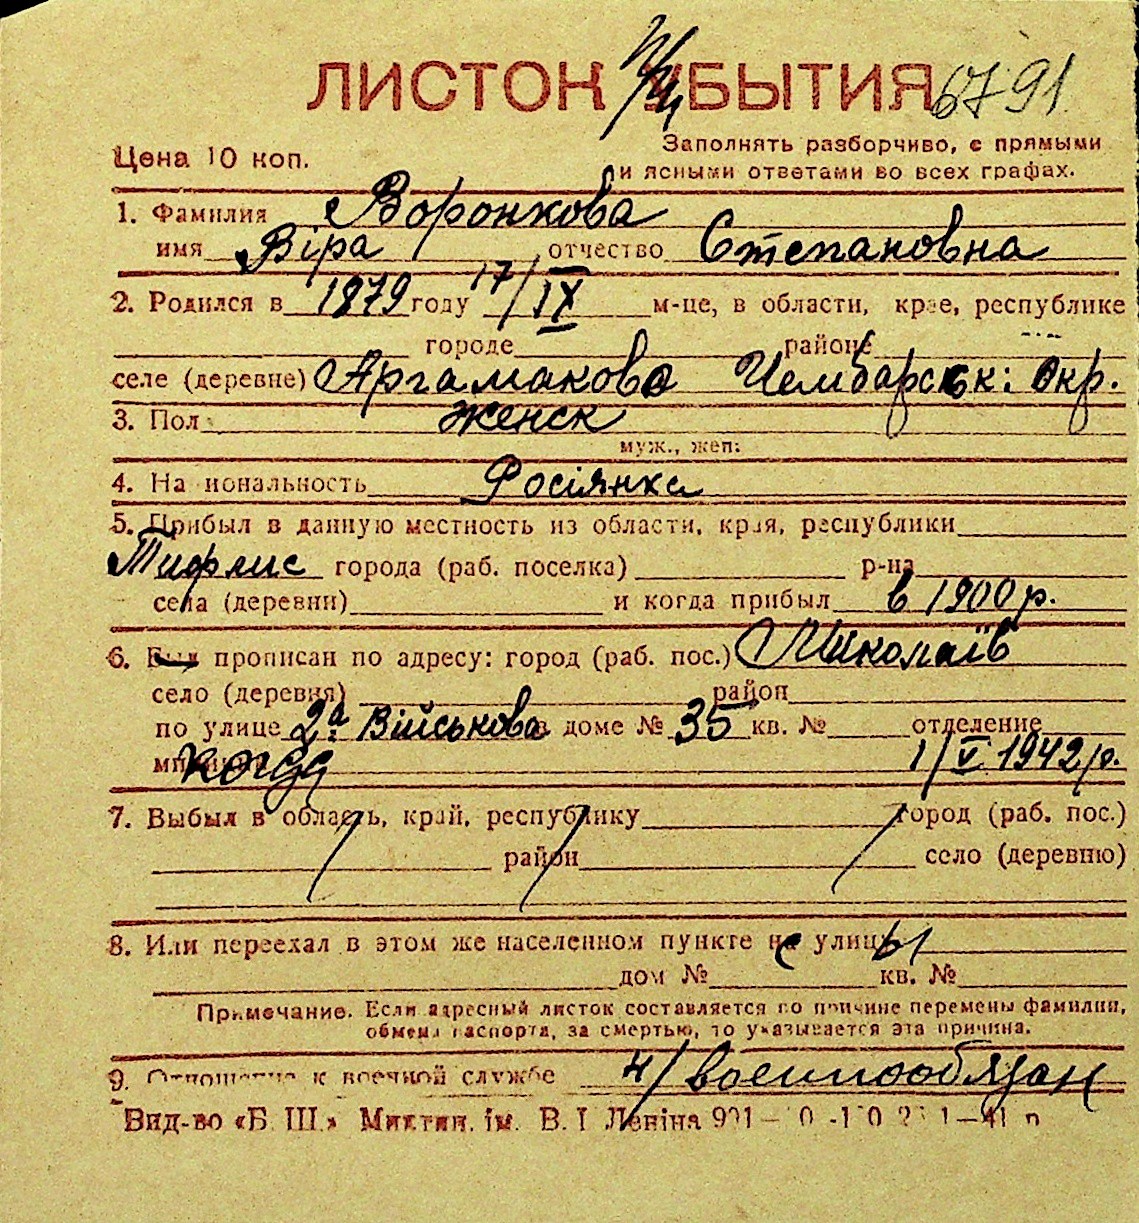 ЛИСТОК УБЫТИЯ 6791
Цена 10 коп. Заполнять разборчиво, с прямыми
и ясными ответами во всех графах.
1. Фамилия Воронкова
имя Віра отчество Степановна
2. Родился в 1879 году 17/IX м-це, в области, крае, республике
городе районе
селе (деревне) Аргамаково Чембарськ: Окр.
3. Пол женск
муж., жен.
4. Национальность Росіянка
5. Прибыл в данную местность из области, края, республики
Тифлис города (раб. поселка) р-на
села (деревни) и когда прибыл в 1900 р.
6. Был прописан по адресу: город (раб. пос.) Миколаїв
село (деревня) район
по улице 2а Військова в доме № 35 кв. № отделение
милиции когда 1/V 1942 р.
7. Выбыл в область, край, республику город (раб. пос.)
район село (деревню)
8. Или переехал в этом же населенном пункте на улицу
дом № кв. №
Примечание. Если адресный листок составляется по причине перемены фамилии,
обмена паспорта, за смертью, то указывается эта причина.
9. Отношение к военной службе н/военнообязан
Вид-во «Б. Ш.» Миктип. ім. В. І. Леніна